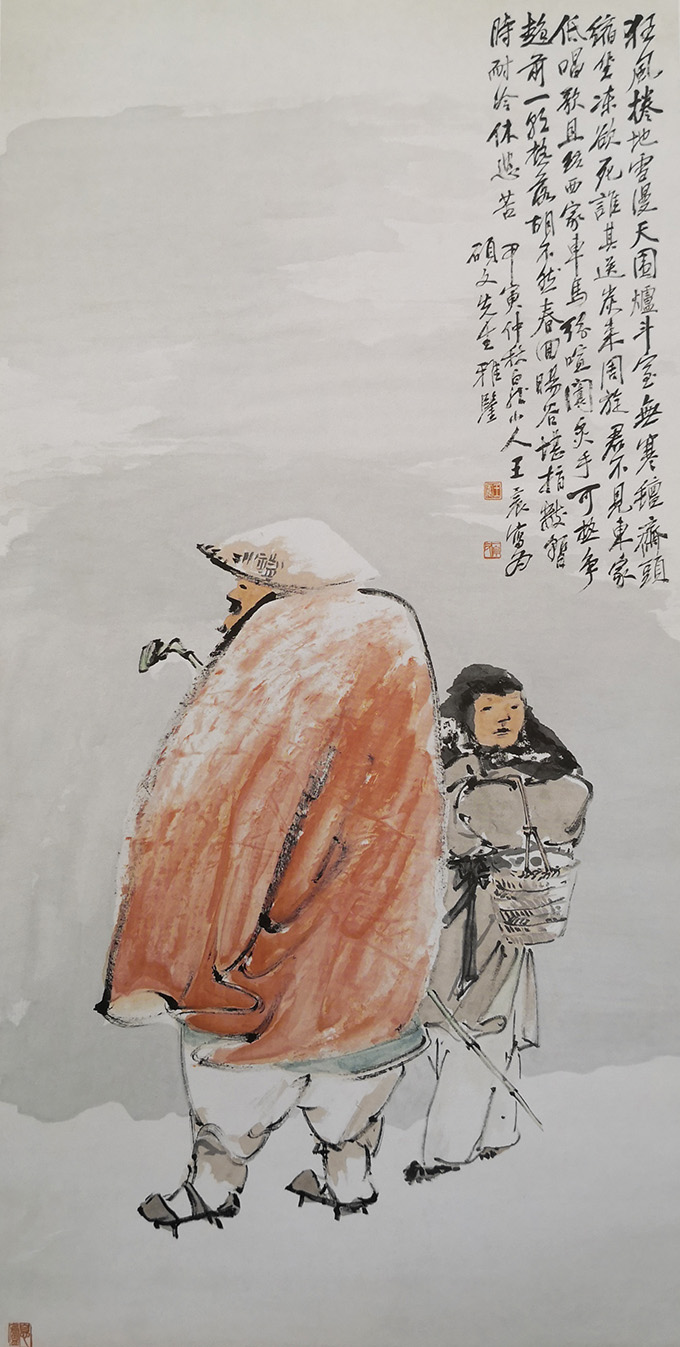 狂風捲地雪漫天圍爐斗室無寒氈齋頭
縮坐凍欲死誰其送炭來周旋君不見東家
低唱歌且絃西家車馬紛喧闐炙手可熱爭
趨前一朝搖落胡不然春回暘谷堪指數暫
時耐冷休苦
甲寅仲秋白龍山人王震寫為
碩文先生雅鑒